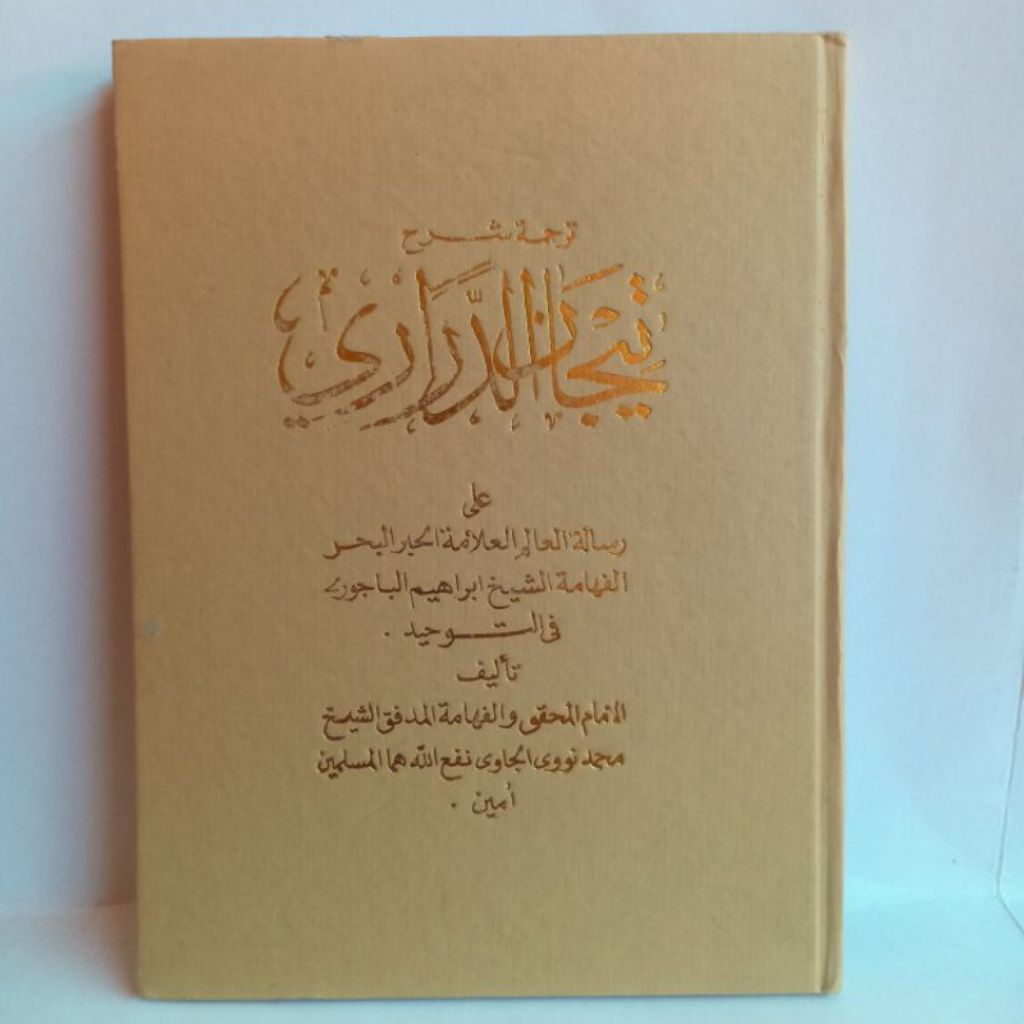 ترجمة شرح
تِيْجَانُ الدَّرَارِي
على
رسالة العالم العلامة الحبر البحر
الفهامة الشيخ ابراهيم الباجورى
فى التوحيد .
تأليف
الامام المحقق والفهامة المدقق الشيخ
محمد نووى الجاوى نفع الله هما المسلمين
أمين .